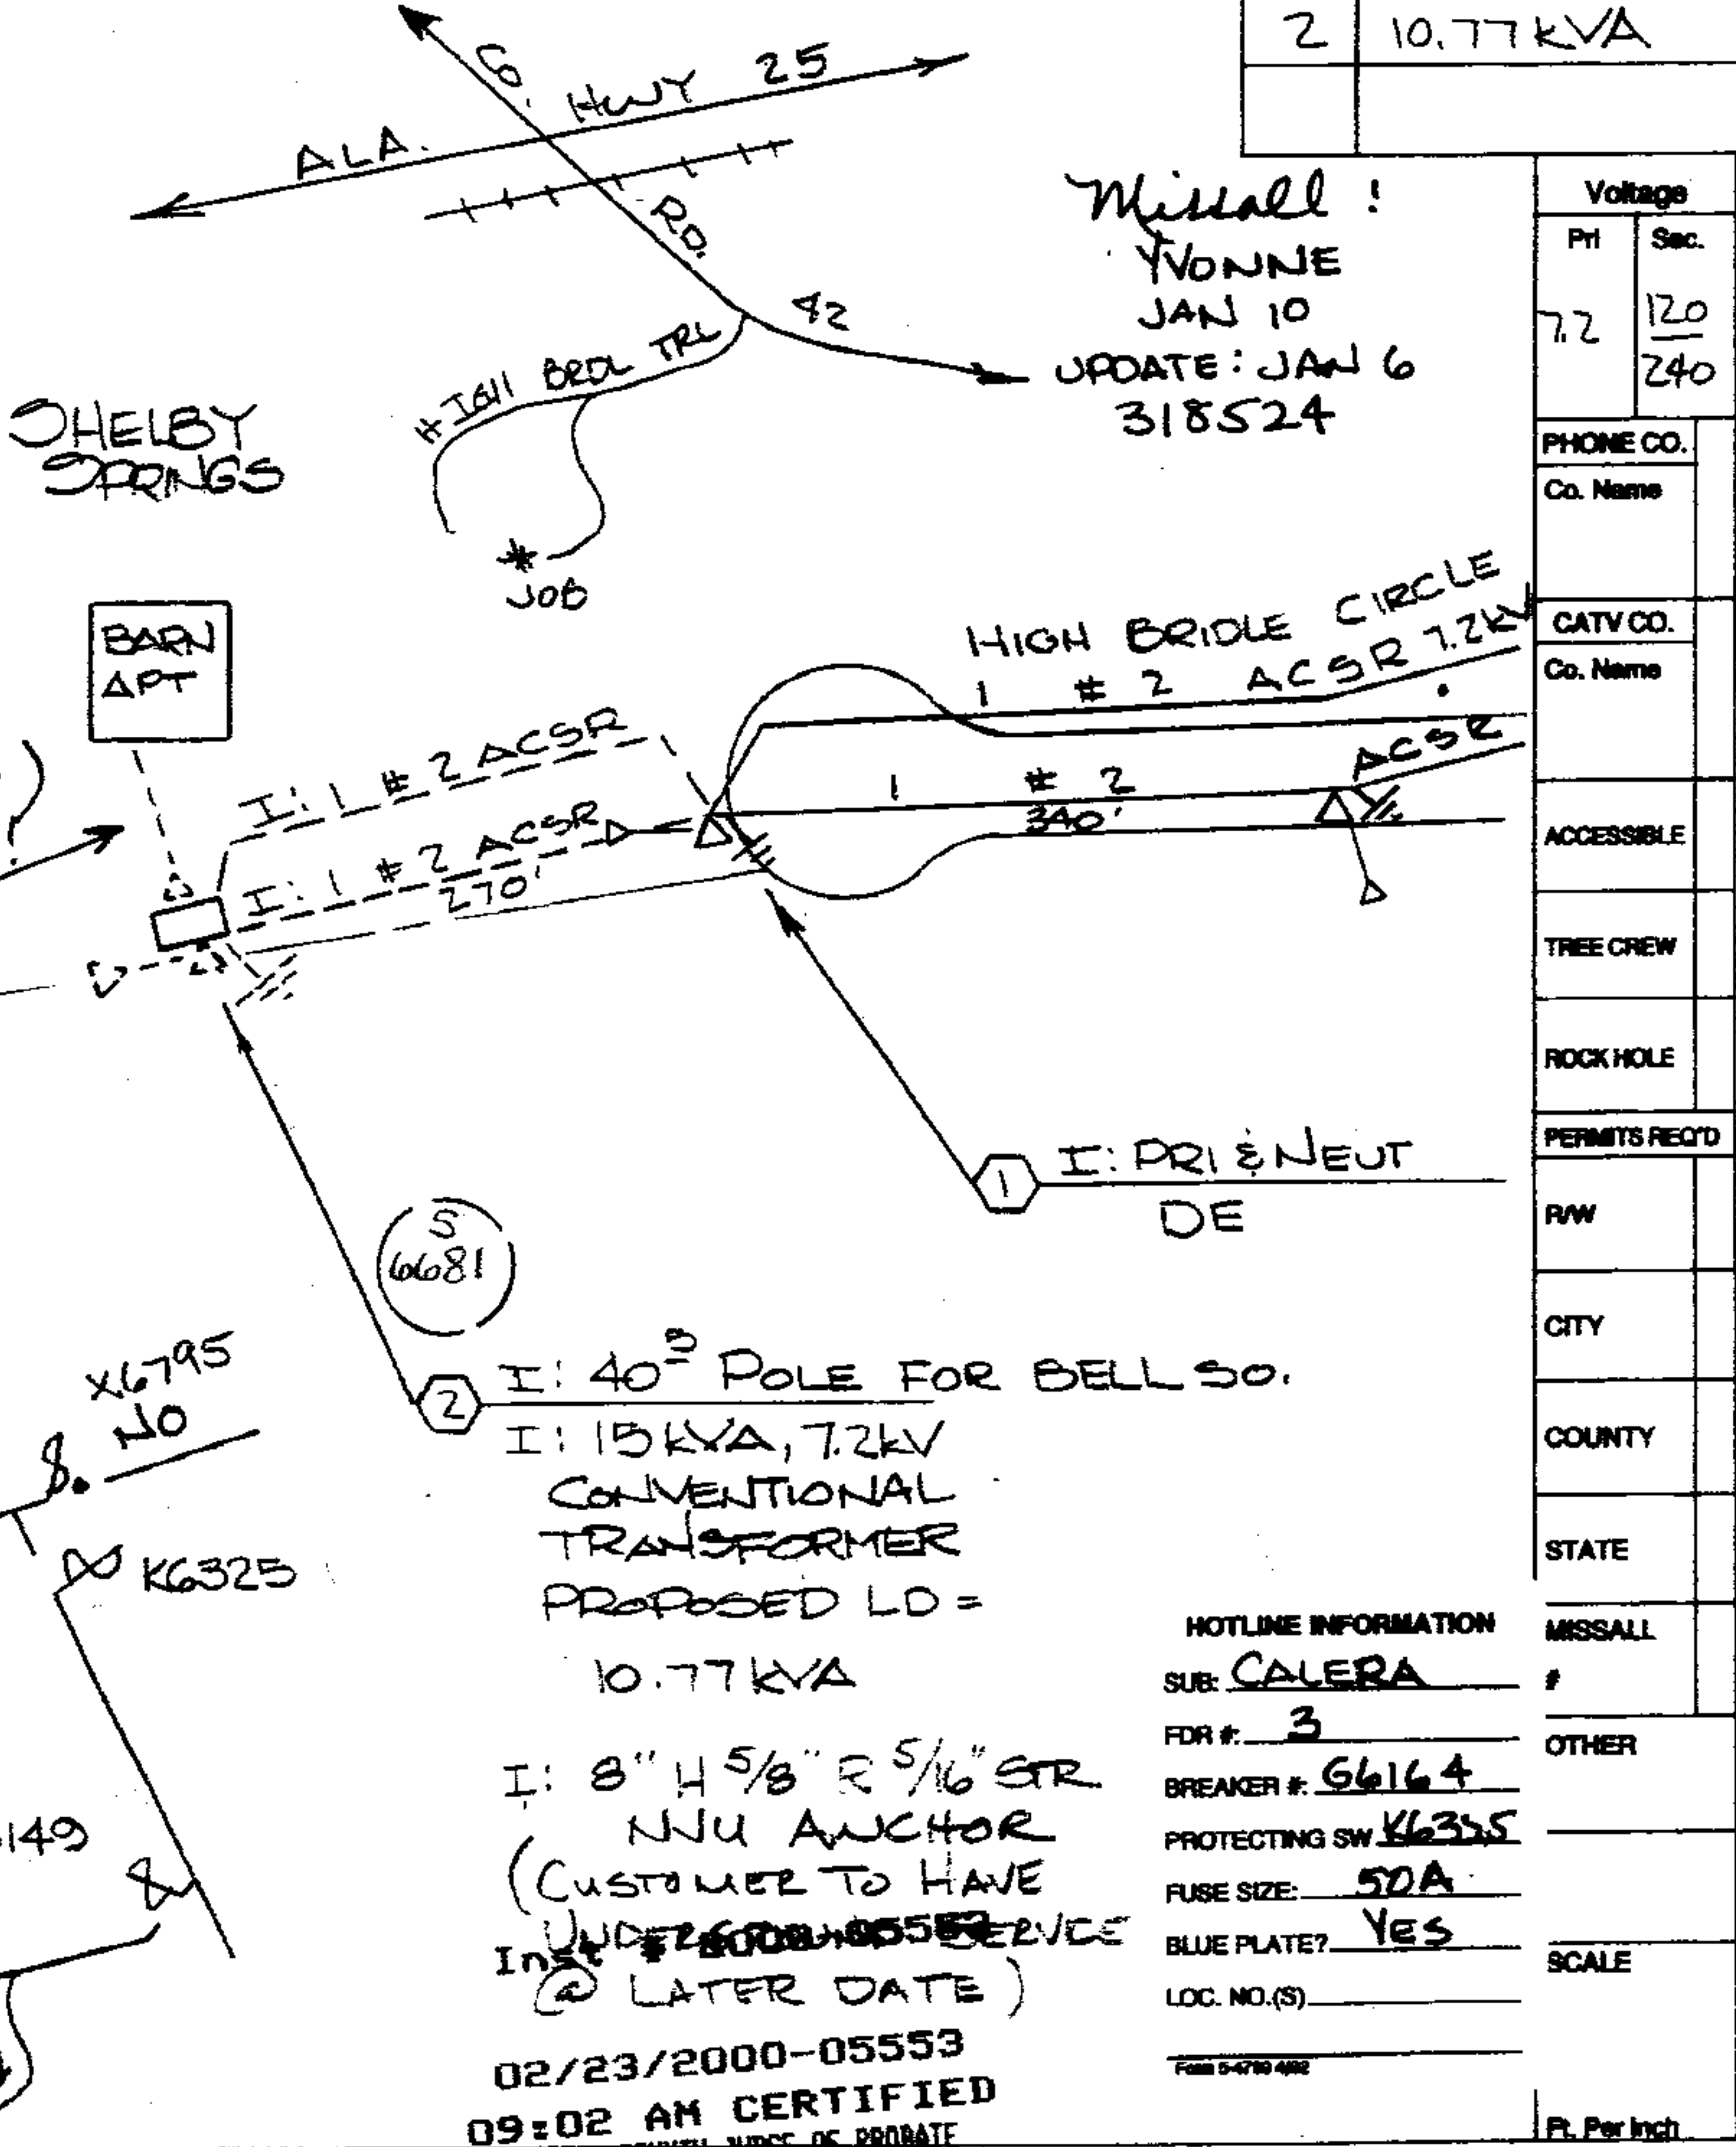 2 10.77 kVA
CO.
ALA. HWY 25
RD.
42
HIGH BRDL TRL
* JOB
SHELBY
SPRINGS
Missall !
YVONNE
JAN 10
UPDATE: JAN 6
318524
Voltage
Pri Sec.
7.2 120
240
PHONE CO.
Co. Name
CATV CO.
Co. Name
ACCESSIBLE
TREE CREW
ROCK HOLE
PERMITS REQ'D
R/W
CITY
COUNTY
STATE
MISSALL
#
OTHER
SCALE
Ft. Per Inch
BARN
APT
HIGH BRIDLE CIRCLE
1 # 2 ACSR 7.2kV
1 # 2 ACSR
340'
I: 1 # 2 ACSR
I: 1 # 2 ACSR
270'
1 I: PRI & NEUT
DE
S
6681
2 I: 40⁵ POLE FOR BELL SO.
I: 15 kVA, 7.2kV
CONVENTIONAL
TRANSFORMER
PROPOSED LD =
10.77 kVA
I: 8" H 5/8" R 5/16" STR.
ANCHOR
(CUSTOMER TO HAVE
UNDERGROUND SERVCE
@ LATER DATE)
X6795
NO
K6325
149
Inst #
02/23/2000-05553
09:02 AM CERTIFIED
JUDGE OF PROBATE
HOTLINE INFORMATION
SUB: CALERA
FDR #: 3
BREAKER #: G6164
PROTECTING SW
FUSE SIZE: 50A
BLUE PLATE? YES
LOC. NO.(S)